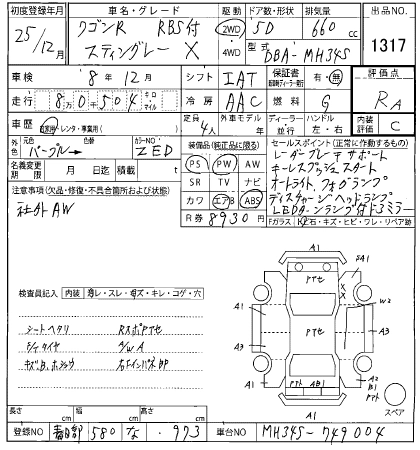 初度登録年月
25/12月
車名・グレード
ワゴンR RBS付
スティングレー X
駆動
2WD
4WD
ドア数・形状
5D
排気量
660 cc
型式 DBA-MH34S
出品NO.
1317
車検
8年12月
シフト IAT
保証書
有・無
評価点
RA
走行
8万0千504 キロ マイル
冷房 AAC
燃料 G
車歴
自家用・レンタ・事業用( )
定員 4人
外車モデル 年
ディーラー 並行
ハンドル 左・右
内装評価 C
外色
元色 パープル
色替
カラーNO. ZED
装備品(純正品に限る)
PS PW AW
SR TV ナビ
カワ エアB ABS
R券 8930円
セールスポイント(正常に作動するもの)
レーダーブレーキサポート
キーレスプッシュスタート
オートライト、フォグランプ
ディスチャージヘッドランプ
LEDターンランプ付ドアミラー
Fガラス 石・キズ・ヒビ・ワレ・リペア跡
名義変更期限 月 日
積載 t
注意事項(欠品・修復・不具合箇所および状態)
社外AW
検査員記入
内装
シートヘタリ
RスポPTセ
A/wA
A1
PTセ
A1
A3
W2
A3
A1
A2
PTセ
AB1
A1
スペア
長さ cm
幅 cm
高さ cm
登録NO 春日部 580 な ・973
車台NO MH34S-749004